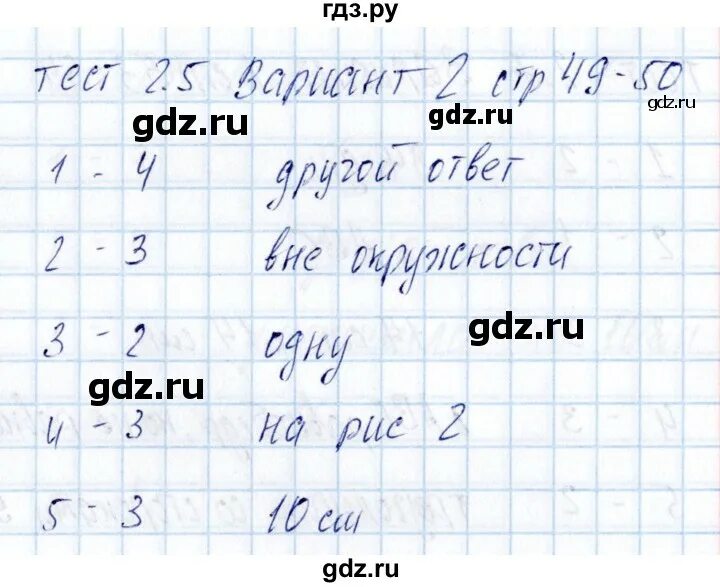 гдз.ру
тест 2.5 Вариант 2 стр 49-50
gdz.ru
gdz.ru
1 - 4 другой ответ
2 - 3 вне окружности
gdz.ru
3 - 2 одну
gdz.ru
4 - 3 на рис 2
5 - 3 10 см
gdz.ru